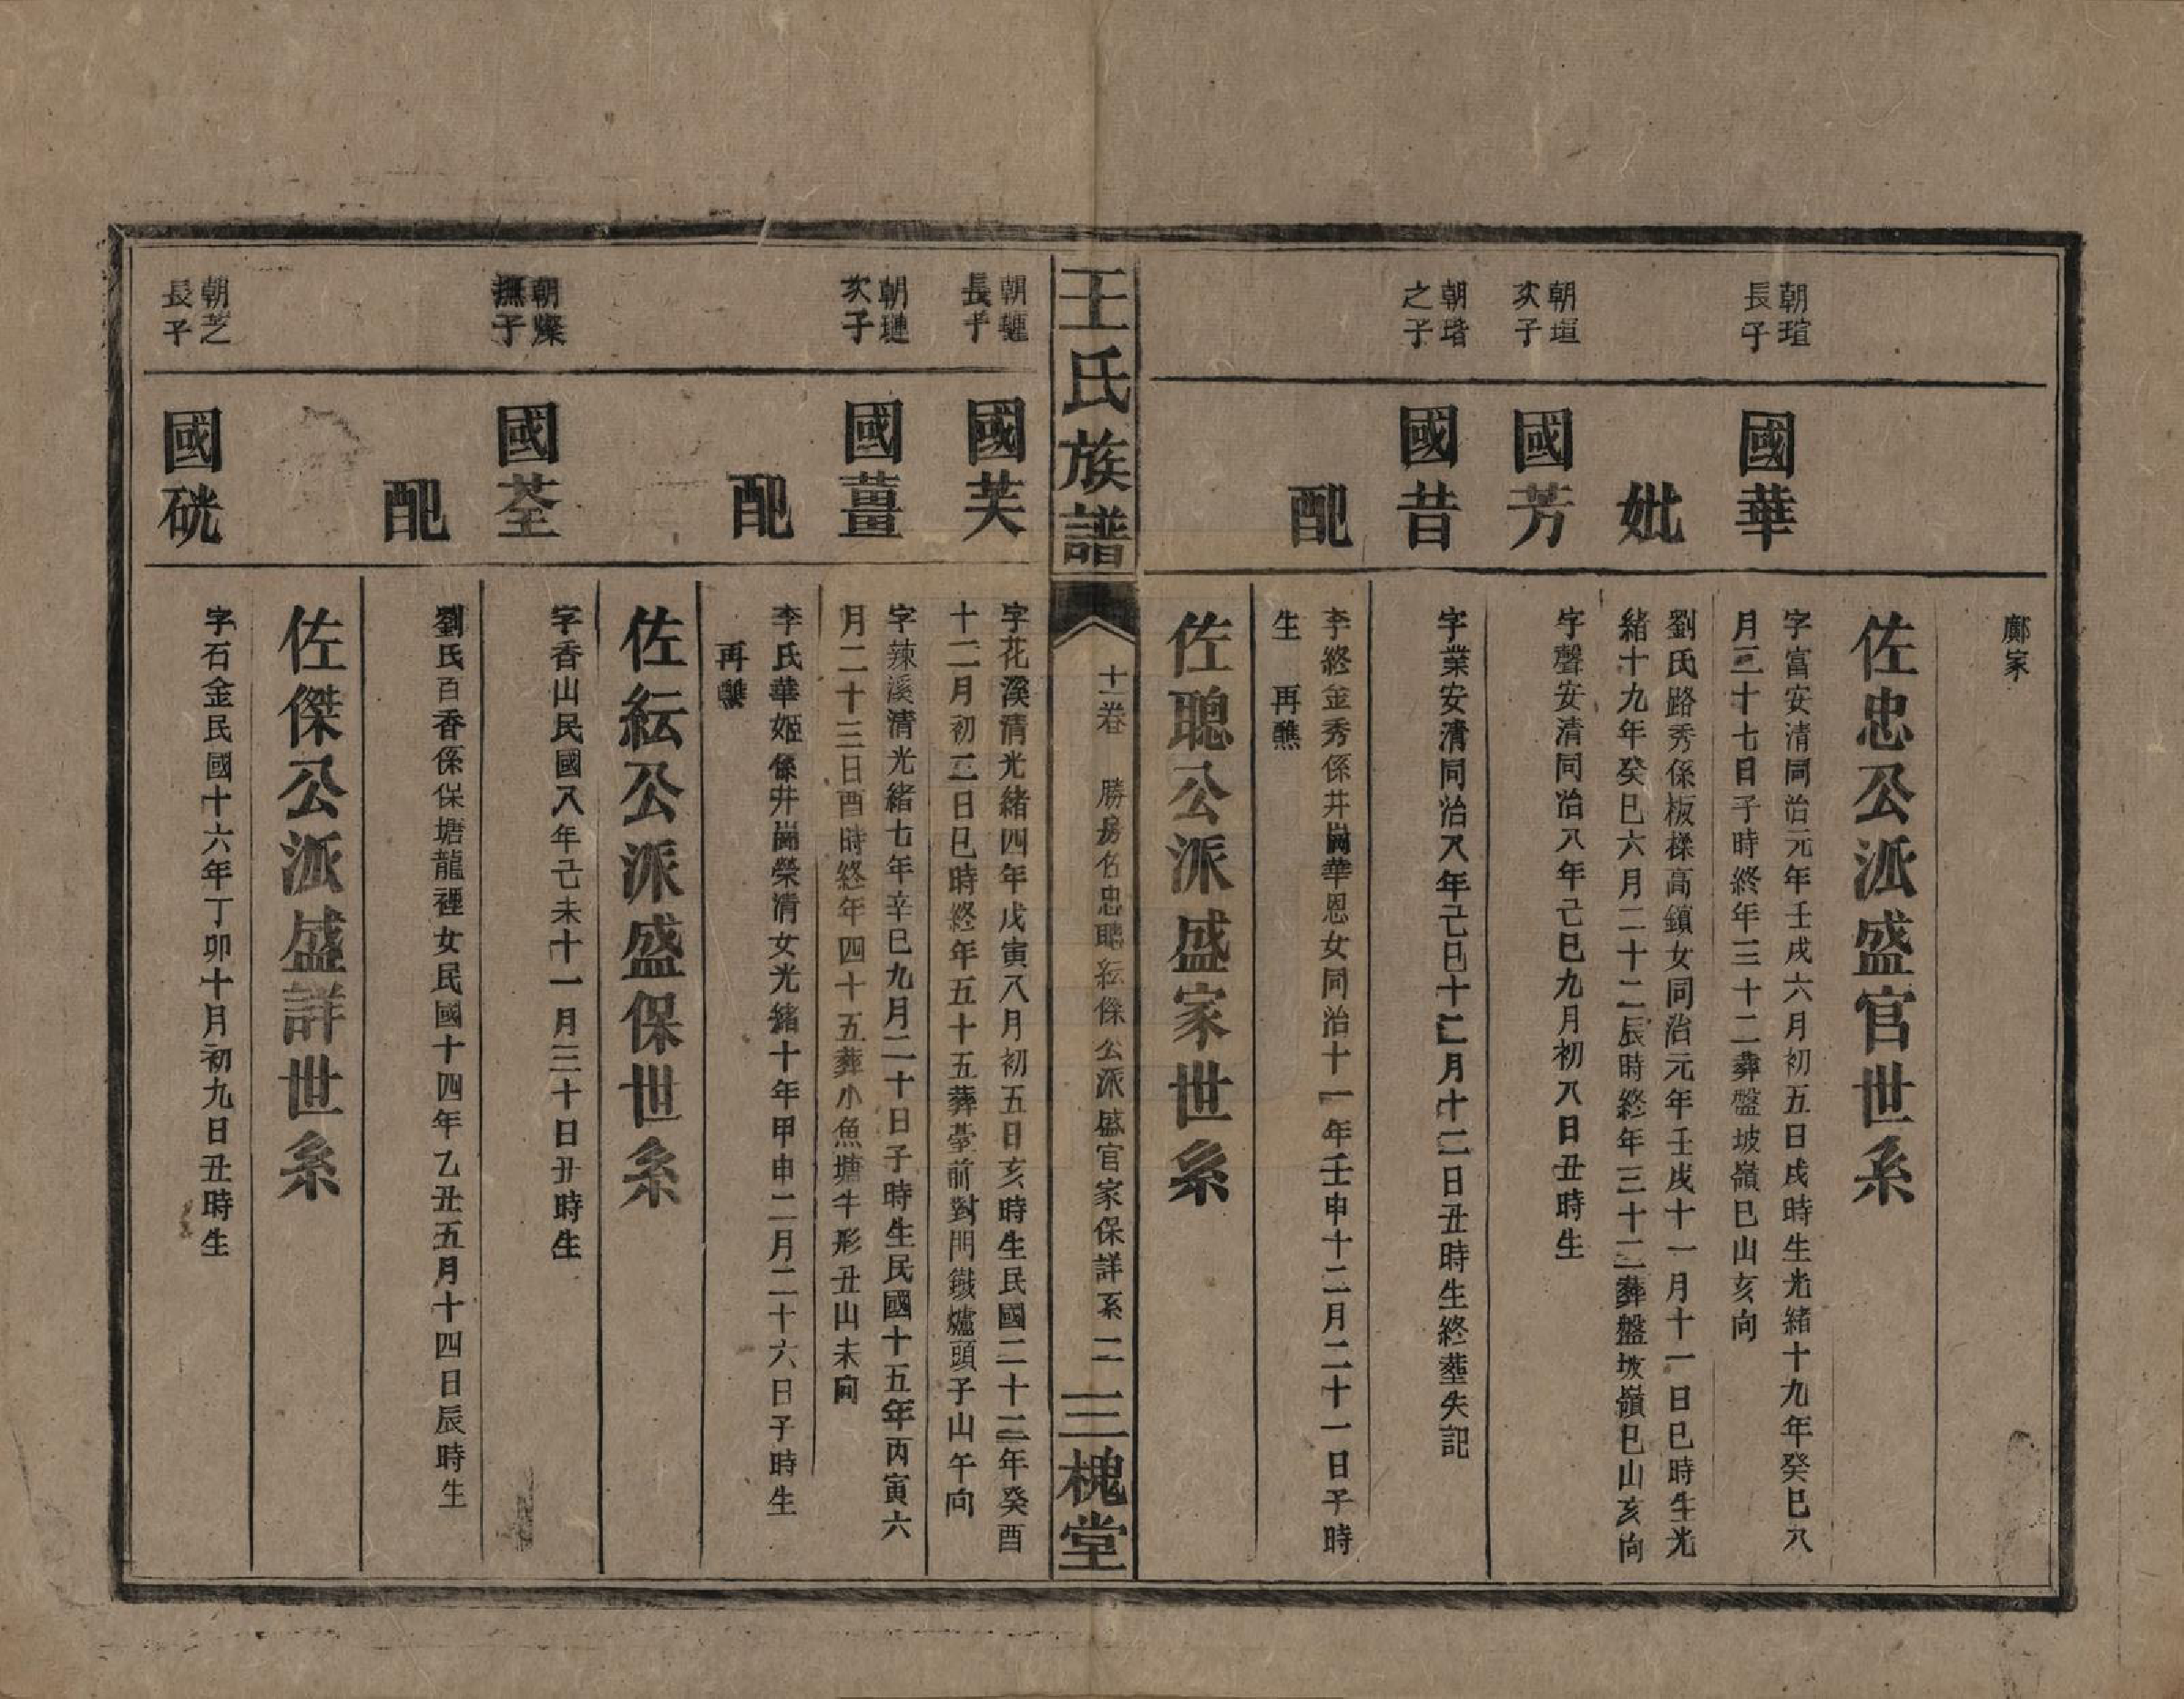 鄺家
佐忠公派盛官世系
朝瑄
長子
國華
字富安清同治元年壬戌六月初五日戌時生光緒十九年癸巳八
月二十七日子時終年三十二葬盤坡嶺巳山亥向
妣
劉氏路秀係板樑高鎮女同治元年壬戌十一月十一日巳時生光
緒十九年癸巳六月二十二辰時終年三十二葬盤坡嶺巳山亥向
朝垣
次子
國芳
字聲安清同治八年己巳九月初八日丑時生
朝瑨
之子
國昔
字業安清同治八年己巳十二月十二日丑時生終塟失記
配
李終金秀係井崗華恩女同治十一年壬申十二月二十一日子時
生 再醮
佐聰公派盛家世系
王氏族譜
十一卷 勝房名忠聰紜傑公派盛官家保詳系 二
三槐堂
朝璉
長子
國芙
字花溪清光緒四年戊寅八月初五日亥時生民國二十二年癸酉
十二月初三日巳時終年五十五葬臺前對門鐵爐頭子山午向
朝璉
次子
國薑
字辣溪清光緒七年辛巳九月二十日子時生民國十五年丙寅六
月二十三日酉時終年四十五葬小魚塘牛形丑山未向
配
李氏華姬係井崗榮清女光緒十年甲申二月二十六日子時生
再醮
佐紜公派盛保世系
朝燦
撫子
國荃
字香山民國八年己未十一月三十日丑時生
配
劉氏百香係保塘龍裡女民國十四年乙丑五月十四日辰時生
佐傑公派盛詳世系
朝芝
長子
國硄
字石金民國十六年丁卯十月初九日丑時生